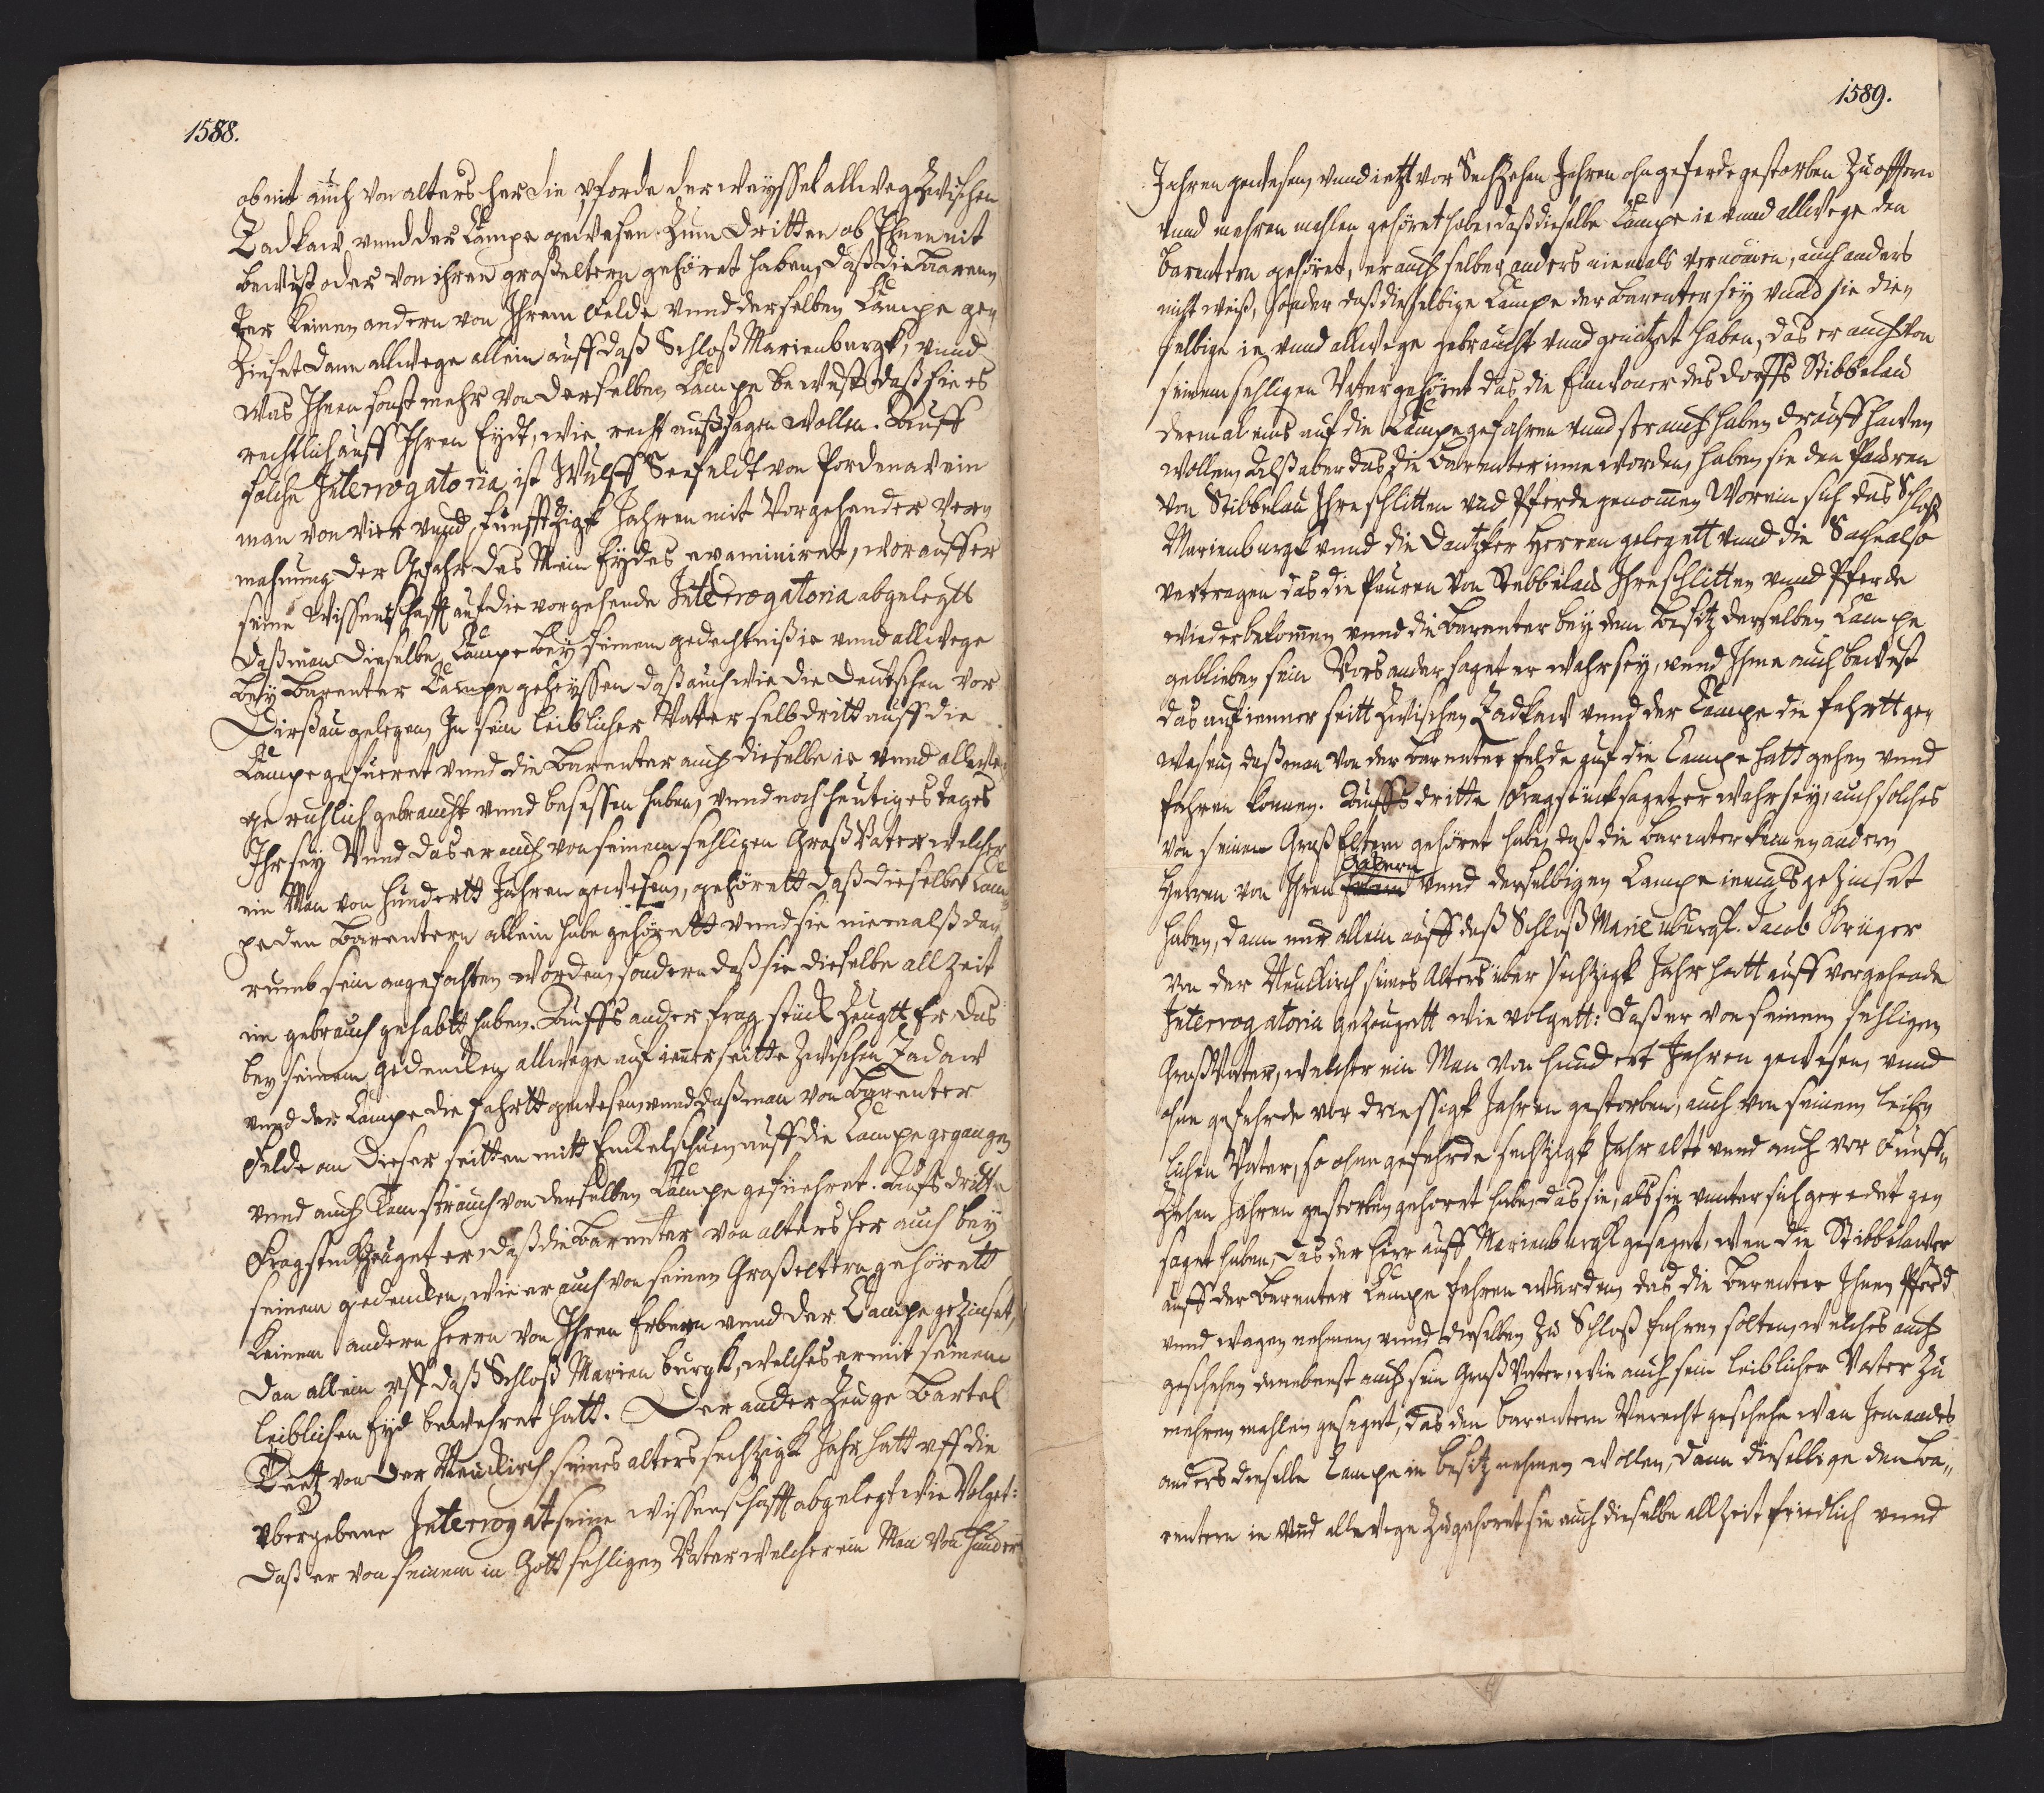 1588.
ob nit auch von alters her die pforde der weyssel allweg zwischen
Zadkaw vnnd der Kampe gewesen. Zum dritten ob Ihnen nit
bewust oder von ihren großeltern gehöret haben, daß die Baren-
ter keinen andern von Ihrem Felde vnnd derselben Kampe ge-
zinset dann allwege allein auff daß Schloß Marienburgk, vnnd
was Ihnen sonst mehr von derselben Kampe bewust daß sie es
rechtlich auff Ihren Eydt, wie recht außsagen wollen. Auff
solche Interrogatoria ist Wulff Seefeldt von Pordenaw ein
man von vier vnnd funfftzigk Jahren mit vorgehender ver-
mahnung der Gefahr des Mein Eydes examiniret, worauff er
seine wissenschafft auf die vorgehende Interrogatoria abgelegtt
daß man dieselbe Kampe bey seinem gedechtniß ie vnnd allwege
bey Barenter Kampe geheyssen daß auch wie die Deutschen vor
Dirßau gelegen, In sein leiblicher Vater selbdritt auff die
Kampe gefueret vnnd die Barenter auch dieselbe ie vnnd allwe-
ge ruhlich gebraucht vnnd besessen haben, vnnd noch heutiges tages
Ihr sey Vnnd das er auch von seinem sehligen Groß Vater welcher
ein Man von hundertt Jahren gewesen, gehörett daß dieselbe Kam-
pe den Barentern allein habe gehörett vnnd sie niemalß da-
rumb sein angefochten worden, sondern daß sie dieselbe all Zeit
im gebrauch gehabtt haben. Auffs ander frag stück Zeugtt Er das
bey seinem gedencken allwege auf ienner seitte zwischen Zadaw
vnnd der Kampe die fahrtt gewesen, vnnd daß man von Barenter
Felde an dieser seitten mitt Enckelschuen auff die Kampe gegangen
vnnd auch Kam strauch von derselben Kampe gefuehret. Aufs dritte
Fragstuck Zeuget er, daß die Barenter von alters her auch bey
seinem gedencken, wie er auch von seinen Großeltern gehörett
Keinem andern Herrn von Ihren Erbern vnnd der Campe gezinset,
dan allein vff daß Schloß Marienburgk, welches er mit seinem
leiblichen Eyd bewehret hatt. Der ander Zeuge Bartel
Deetz von der Neukirch seines alters sechtzigk Jahr hatt vff die
vbergebene Interrogat seine wissenschafft abgelegt wie Volget:
Daß er von seinem in Gott sehligen Vater welcher ein Man von hundert
1589.
Jahren gewesen, vnnd ietzt vor Sechzehen Jahren ohn geferde gestorben Zu offtern
vnnd mehren mahlen gehöret habe, daß dieselbe Kampe ie vnnd allwege den
Barentern gehöret, er auch selber anders niemals vernomen, auch anders
nicht weiß, sonder daß dieselbige Kampe der Barenter sey vnnd sie die-
selbige ie vnnd allwege gebraucht vnnd genützet haben, das er auch von
seinem sehligen Vater gehöret das die Einwoner des dorffs Stibbelau
dermal eins auf die Kampe gefahren vnnd strauch haben drauff hawen
wollen, Alß aber das die Barenter inne worden, haben sie den Pauren
von Stibbelau Ihre schlitten vnd Pferde genomen Worein sich das Schloß
Marienburgk vnnd die Dantzker Herren gelegett vnnd die Sache also
vertragen das die Pauren von Stebbelau Ihre schlitten vnnd Pferde
wiederbekomen vnnd die Barenter bey dem Besitz derselben Campe
geblieben sein Vors ander saget er wahr sey, vnnd Ihme auch bewust
das auf ienner seitt Zwischen Zadkaw vnnd der Campe die fahrtt ge-
wesen, daß man von der Barenter felde auf die Campe hatt gehen vnnd
fahren konnen. Auffs dritte fragstück saget er wahr sey, auch solches
von seinen Groß Eltern gehöret habe, daß die Barenter keinen andern
Herren von Ihren Gütern vnnd derselbigen Campe iemals gezinset
haben, dann nur allein auff daß Schloß Marienburgk. Jacob Krüger
von der Neukirch seines Alters über sechtzigk Jahr hatt auff vorgehende
Interrogatoria gezeugett wie volgett: daß er von seinem sehligen
GroßVater, welcher ein Man von hundert Jahren gewesen, vnnd
ohne gefehrde vor driessigk Jahren gestorben, auch von seinem leib-
lichen Vater, so ohne gefehrde sechtzigk Jahr alt vnnd auch vor Funff-
Zehen Jahren gestorben gehoret habe, das sie, als sie vnter sich geredet ge-
saget haben, das der Herr auff Marienburgk gesaget, wan die Stibbelawer
auff der Barenter Kampe fahren wurden, das die Barenter Ihnen Pferd
vnnd wagen nehmen, vnnd dieselben Zu Schloß fuhren solten, welches auch
geschehen darnebenst auch sein Groß Vater, wie auch sein leiblicher Vater Zu
mehren mahlen gesaget, das den Barentern Vnrecht geschehe wan Jemandes
anders dieselbe Campe in besitz nehmen wollen, dann dieselbige den Ba-
rentern ie vnnd allwege zugehoret sie auch dieselbe all Zeit friedlich vnnd